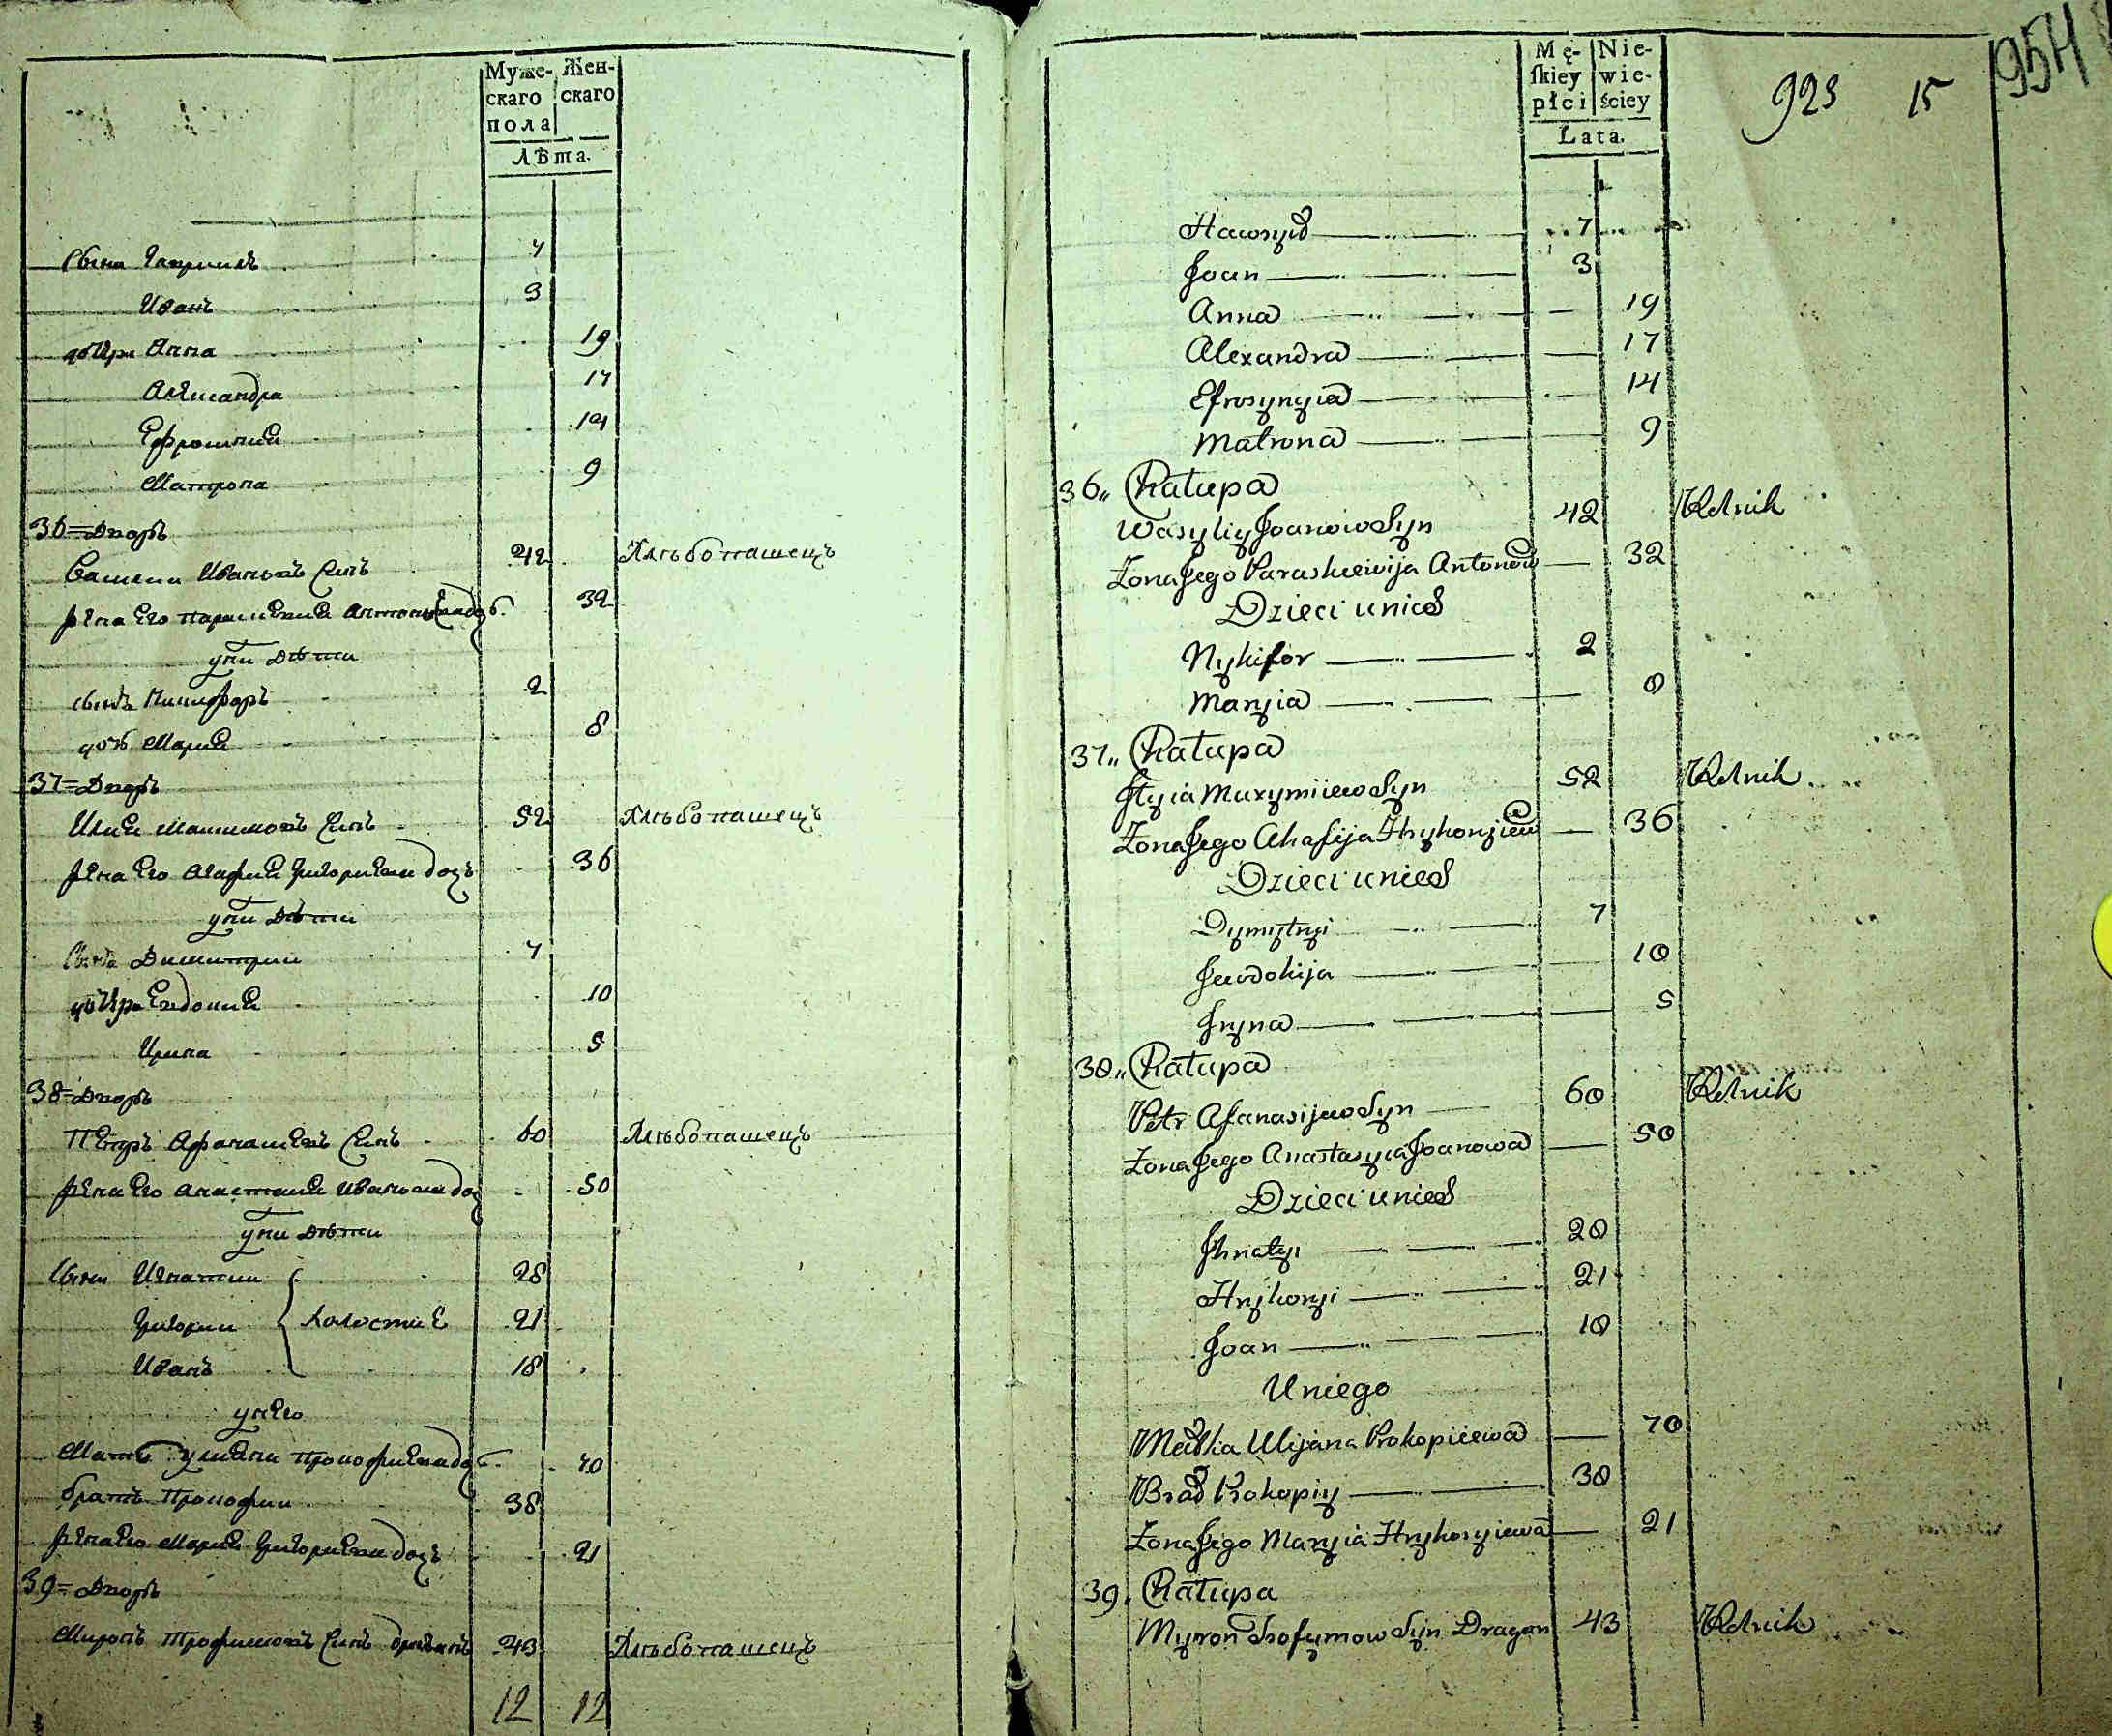 Муже-
скаго
пола
Жен-
скаго
Лѣта.
Сыны Гавриилъ 7
Иванъ 3
дочери Анна 19
Александра 17
Ефросиния 14
Матрона 9
36=Дворъ
Василии Ивановъ сынъ 42 Хлѣбопашецъ
жена его Параскевия Антонова доч. 32
у них дѣти
сынъ Никифоръ 2
дочь Мария 8
37=Дворъ
Илия Максимовъ сынъ 52 Хлѣбопашецъ
жена его Агафия Григориева дочь 36
у них дѣти
Сынъ Димитрии 7
дочери Евдокия 10
Ирина 5
38=Дворъ
Петръ Афанасиевъ сынъ 60 Хлѣбопашецъ
жена его Анастасия Иванова доч 50
у них дѣти
Сыны Игнатии 28
Григории холостие 21
Иванъ 18
у него
Мать Улияна Прокофиева доч. 70
братъ Прокофии 38
жена его Мария Григориева дочь 21
39=Дворъ
Миронъ Трофимовъ сынъ драганъ 43 Хлѣбопашецъ
12 12
Mę-
ſkiey
płci
Nie-
wie-
ściey
Lata.
923 15 954
Hawryił 7
Joan 3
Anna 19
Alexandra 17
Efrosynyia 14
Matrona 9
36„ Chałupa
Wasyliy Joanow Syn 42 Rolnik
Zona Jego Paraskiewija Antonow 32
Dzieci unich
Nykifor 2
Maryia 8
37„ Chałupa
Ilyia Maxymiiew Syn 52 Rolnik
Zona Jego Ahafija Hryhoryiew 36
Dzieci unich
Dymytryi 7
Jewdokija 10
Jryna 5
38„ Chałupa
Petr Afanasijew Syn 60 Rolnik
Zona Jego Anastasyia Joanowa 50
Dzieci unich
Jhnatyi 28
Hryhoryi 21
Joan 18
Uniego
Matka Ulijana Prokopiiewa 70
Brat Prokopiy 38
Zona Jego Maryia Hryhoryiewa 21
39. Chałupa
Myron Trofymow Syn Dragan 43 Rolnik